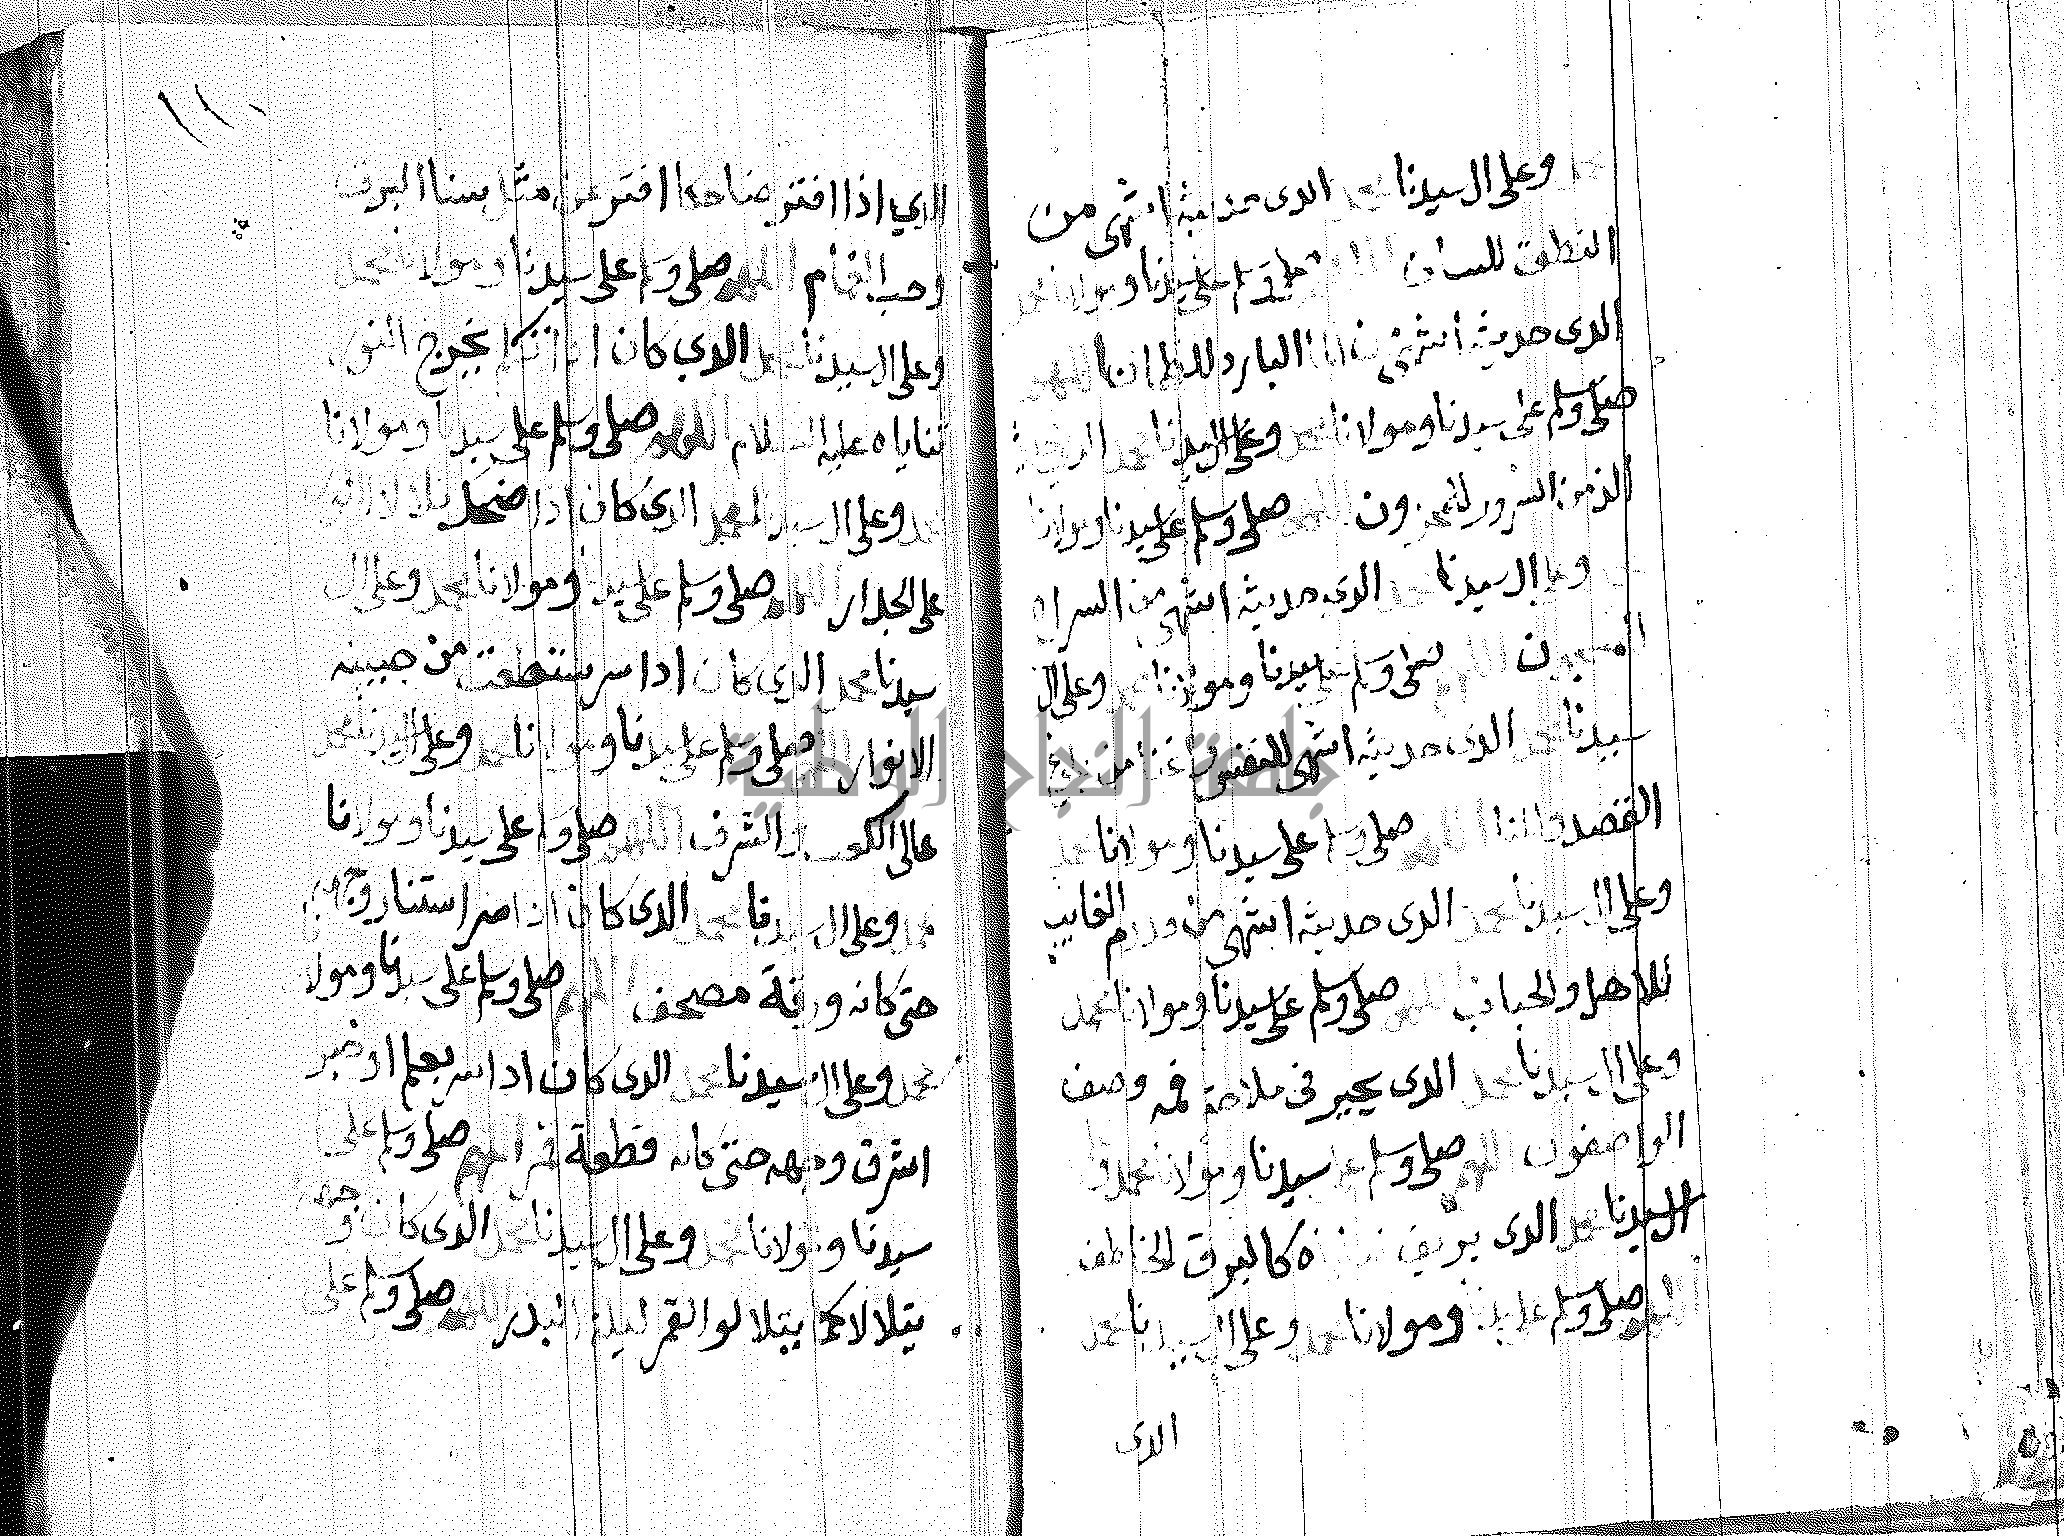 وعلى ال سيدنا محمد الدى حديثه اشهى من
النطق للسان اللهم صلى وسلم على سيدنا ومولانا محمد
الدى حديثه اشهى البارد للظمان اللهم
صلى وسلم على سيدنا ومولانا محمد وعلى ال سيدنا محمد
الذ من السرور للمحزون اللهم صلى وسلم على سيدنا ومولانا
وعلى ال سيدنا محمد الدى حديثه اشهى من السراء
اللهم صلى وسلم على سيدنا ومولانا محمد وعلى ال
سيدنا محمد الدى حديثه اشهى للنفس من
القصد والمنا اللهم صلى وسلم على سيدنا ومولانا محمد
وعلى ال سيدنا محمد الدى حديثه اشهى من الغايب
للاهل والحباب اللهم صلى وسلم على سيدنا ومولانا محمد
وعلى ال سيدنا محمد الدى يحير فى ملاحة فمه وصف
الواصفون اللهم صلى وسلم على سيدنا ومولانا محمد و
ال سيدنا محمد الدى بريق كالبرق الخاطف
اللهم صلى وسلم على سيدنا ومولانا محمد وعلى ال سيدنا محمد
الدى
١١
الدي اذا افتر ضاحكا افتر عن مثل سنا البرق
وحب الغمام اللهم صلى وسلم على سيدنا ومولانا محمد
وعلى ال سيدنا محمد الدي كان اذا تكلم يخرج النور
ثناياه عليه السلام اللهم صلى وسلم على سيدنا ومولانا
محمد وعلى ال سيدنا محمد الدى كان اذا ضحك
على الجدار اللهم صلى وسلم على سيدنا ومولانا محمد وعلى ال
سيدنا محمد الدى كان ادا سر سطعت من جبينه
الانوار اللهم صلى وسلم على سيدنا ومولانا محمد وعلى ال سيدنا محمد
عالى الكعب والشرف اللهم صلى وسلم على سيدنا ومولانا
محمد وعلى ال سيدنا محمد الدى كان اذا سر استنار وجهه
حتى كانه ورقة مصحف اللهم صلى وسلم على سيدنا ومولانا
محمد وعلى ال سيدنا محمد الدى كان ادا
اشرق وجهه حتى كانه قطعة قمر اللهم صلى وسلم على
سيدنا ومولانا محمد وعلى ال سيدنا محمد الدى كان وجهه
يتلالا كما يتلالو القمر ليلة البدر اللهم صلى وسلم على
جامعة النجاح الوطنية